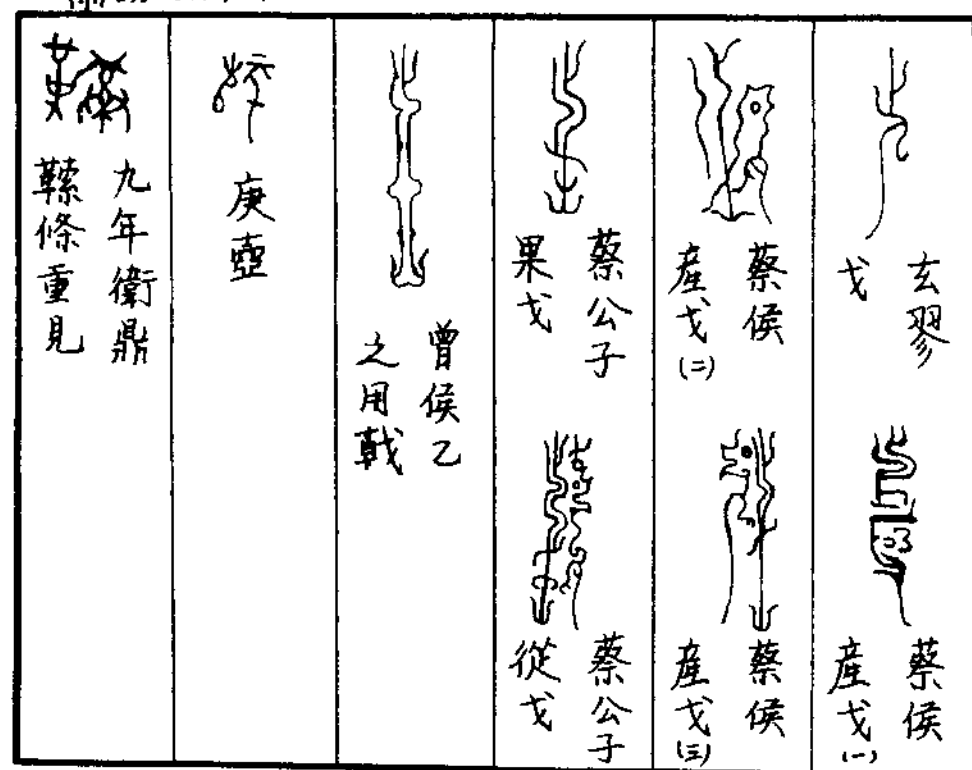 玄翏
戈
蔡侯
産戈(一)
蔡侯
産戈(二)
蔡侯
産戈(三)
蔡公子
果戈
蔡公子
從戈
曾侯乙
之用戟
庚壺
九年衛鼎
條重見